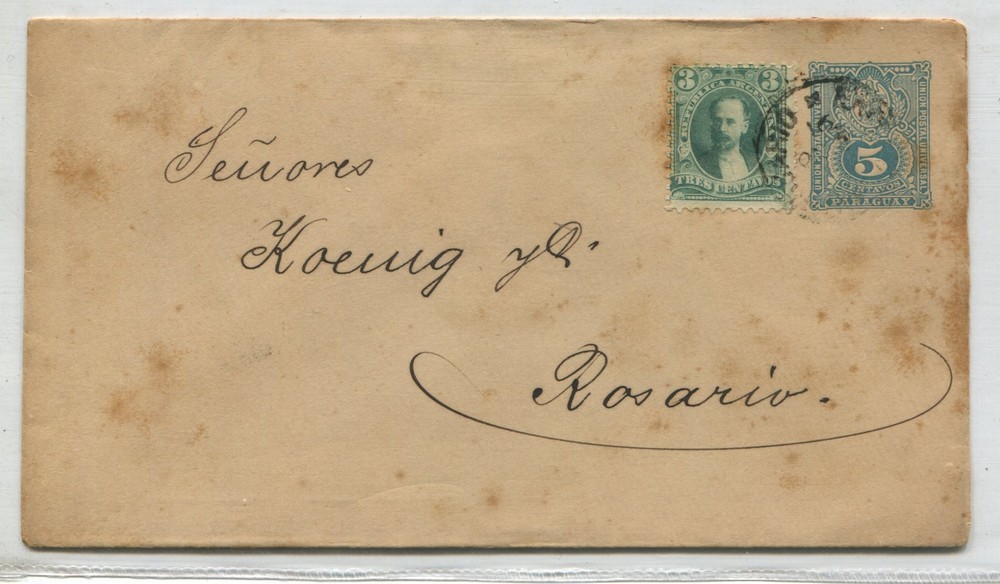 3 3
REPUBLICA ARGENTINA
TRES CENTAVOS
UNION POSTAL UNIVERSAL
5
CENTAVOS
PARAGUAY
Señores
Koenig y C.
Rosario.